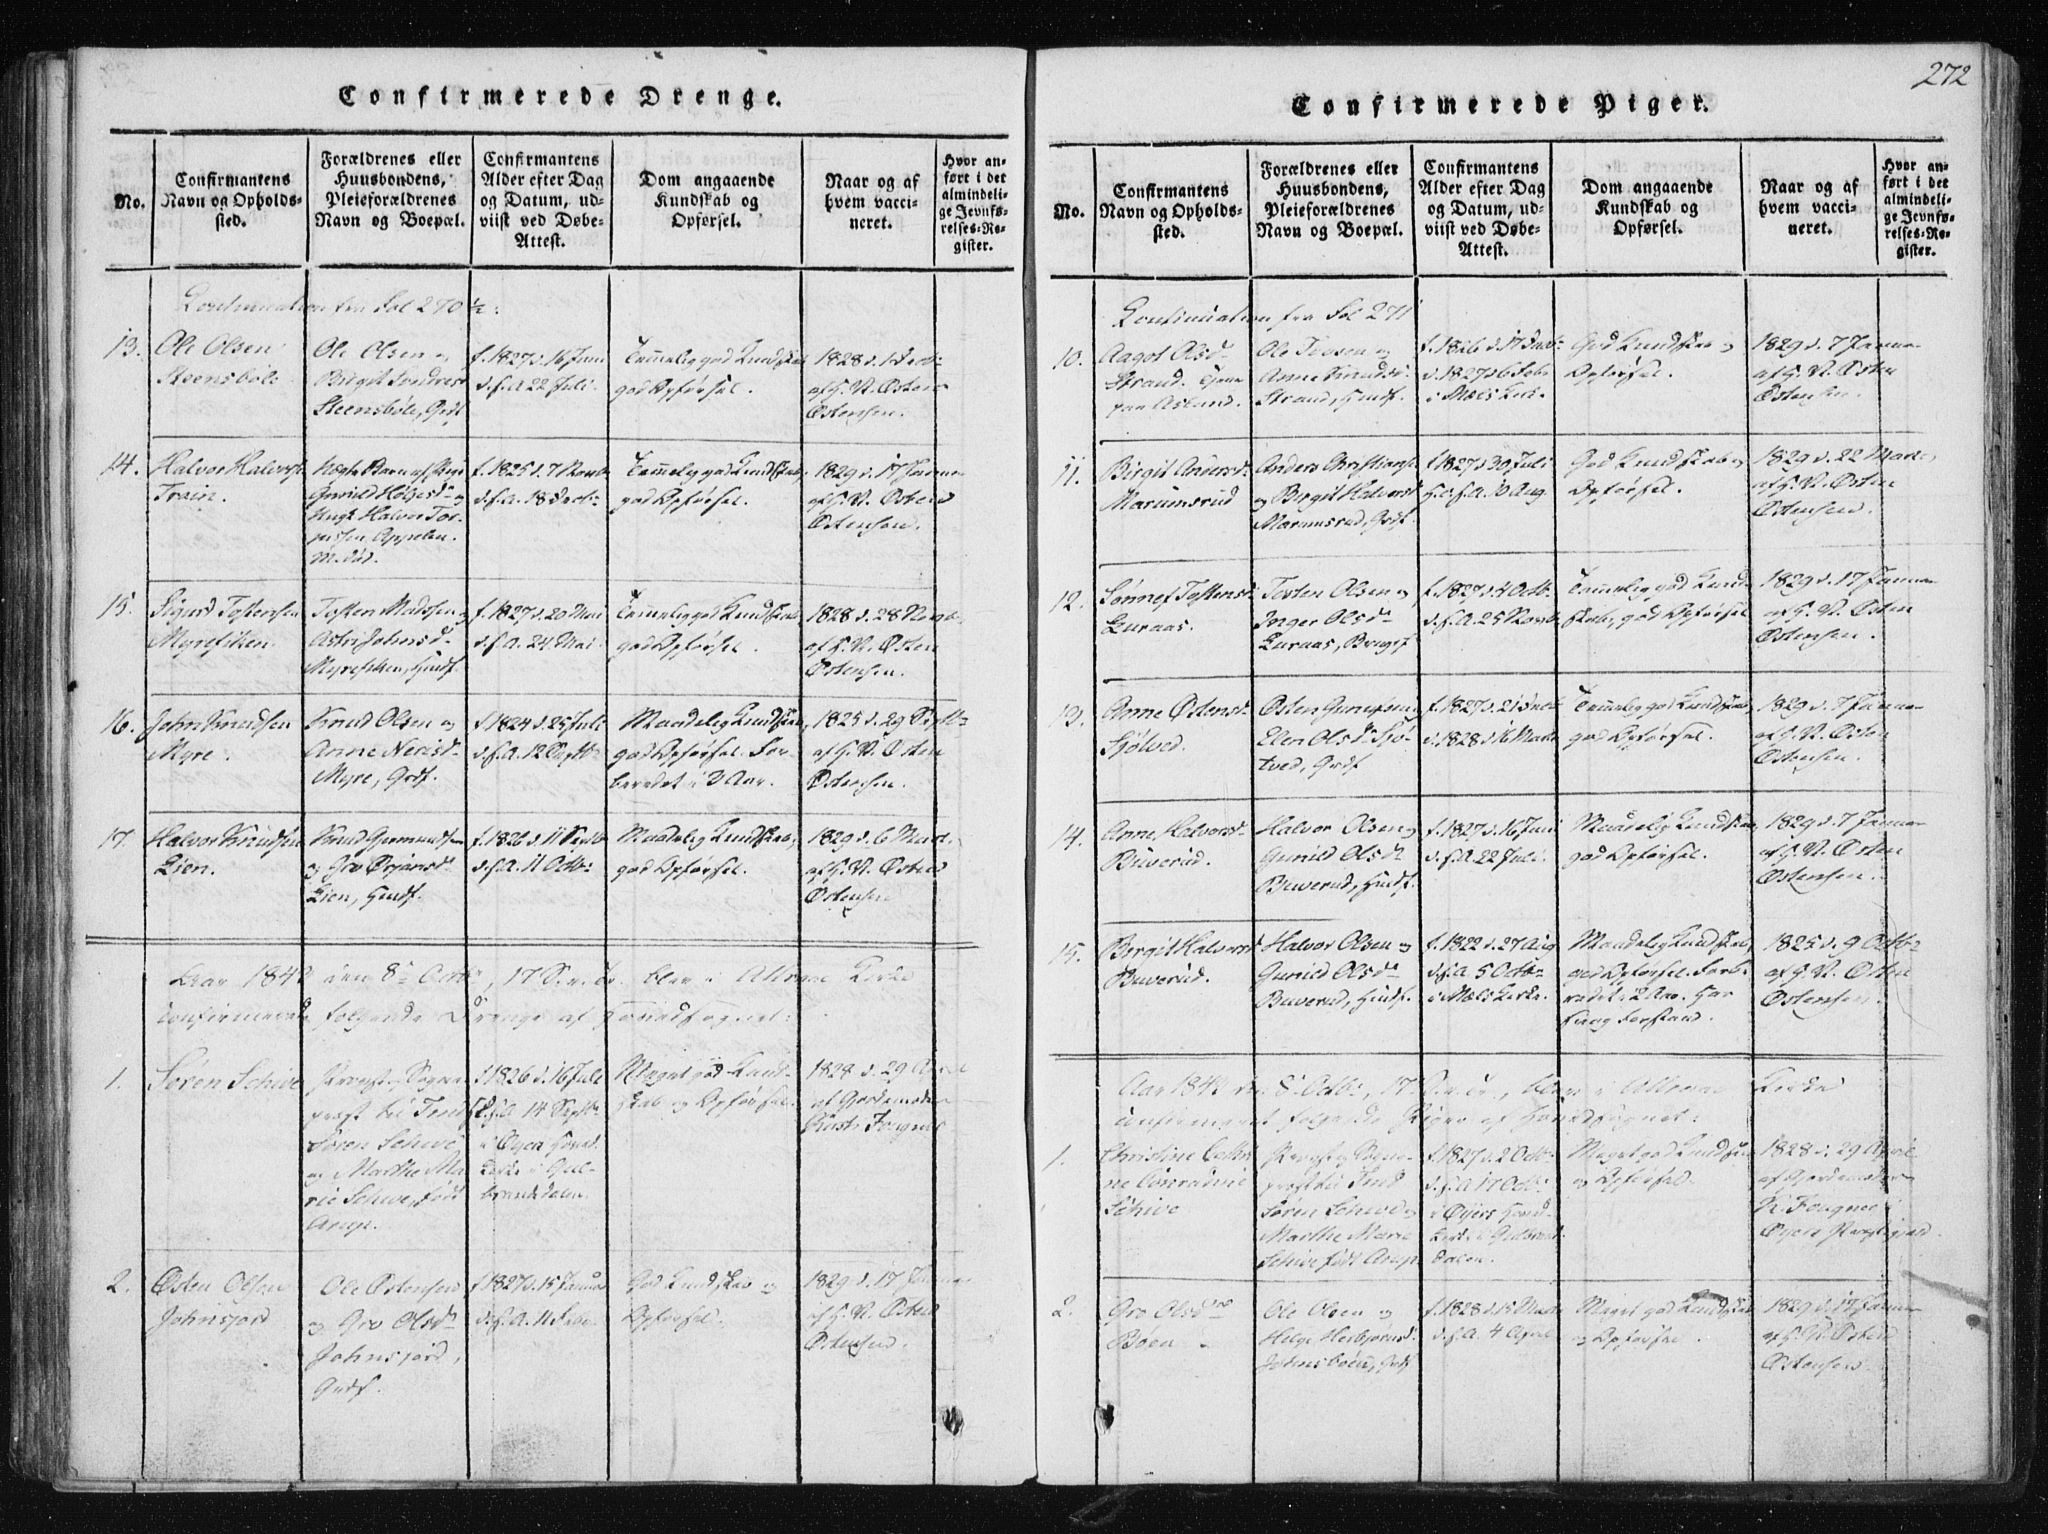 272
Confirmerede Drenge.
No.
Confirmantens
Navn og Opholds-
sted.
Forældrenes eller
Huusbondens,
Pleieforældrenes
Navn og Boepæl.
Confirmantens
Alder efter Dag
og Datum, ud-
viist ved Døbe-
Attest.
Dom angaaende
Kundskab og
Opførsel.
Naar og af
hvem vacci-
neret.
Hvor an-
ført i det
almindeli-
ge Jevnfø-
relses-Re-
gister.
Continuation fra Fol 270½:
13.
Ole Olsen
Steensböle
Ole Olsen og
Birgit
Steensböle, Grdf
f. 1827 d. 16 Juni
d.s.A. 22 Juli.
Temmelig god Kundskab
god Opförsel.
1828 d. 1
af H. N. Østen
Østensen.
14.
Halvor Halvors:
Train.
Uægte Barn af Pige
Gunild Helgesd: og
Ungk. Halvor Tor-
Moder død.
f. 1825 d. 7 Novb
d.s.A. 18 Decb:
Temmelig god Kundskab,
god Opförsel.
1829 d. 17 Janua
af H. N. Østen
Østensen.
15.
Sigurd Tostensen
Myrefiken.
Tosten Madssen og
Astri Johnsd:
Myrefiken, Huusf.
f. 1827 d. 20 Mai
d.s.A. 24 Mai.
Temmelig god Kundskab,
god Opförsel.
1828 d. 28 Novb.
af H. N. Østen
Østensen.
16.
John Knudsen
Myre.
Knud Olsen og
Anne Nerisd:
Myre, Grdf.
f. 1824 d. 25 Juli
d.s.A. 12 Septb:
Maadelig Kundskab,
god Opförsel. For-
beredet i 3 Aar.
1825 d. 29 Septb:
af H. N. Østen
Østensen.
17.
Halvor Knudsen
Lien.
Knud Gunmundsen
og Gro Ørjansd:
Lien, Huusf.
f. 1826 d. 11 Septb
d.s.A. 11 Octb:
Maadelig Kundskab,
god Opförsel.
1829 d. 6 Mart.
af H. N. Østen
Østensen
Aar 1842 den 8de Octb:, 17 S. e. Tr. blev i Kirke
confirmerede følgende Drenge af
1.
Sören Schive
Provst og Sogne-
præst til Tind
Sören Schive
og Marthe Ma-
rie Schive, födt
Arup.
f. 1826 d. 16 Juli
d.s.A. 14 Septb:
i Øyer
Kirke i Gul-
brandsdalen.
Meget god Kund-
skab og Opförsel.
1828 d. 29 April
af Gjordemoder
2.
Østen Olsen
Johnsjord
Ole Østensen
og Gro Olsd:
Johnsjord,
Grdf.
f. 1827 d. 15 Januar
d.s.A. 11 Febr.
God Kundskab og
Opförsel.
1829 d. 17 Janua
af H. N. Østen
Østensen.
Confirmerede Piger.
No.
Confirmantens
Navn og Opholds-
sted.
Forældrenes eller
Huusbondens,
Pleieforældrenes
Navn og Boepæl.
Confirmantens
Alder efter Dag
og Datum, ud-
viist ved Døbe-
Attest.
Dom angaaende
Kundskab og
Opførsel.
Naar og af
hvem vacci-
neret.
Hvor an-
ført i det
almindeli-
ge Jevnfø-
relses-Re-
gister.
Continuation fra Fol 271
10.
Aagot Olsd:
Strand. Tjene
paa Asland.
Ole Tovsen og
Anne Knudsd:
Strand, Huusf.
f. 1826 d. 17 Decb:
d. 1827 d. 6 Febr
i Mæls Kirke.
God Kundskab og
Opförsel.
1829 d. 7 Janua
af H. N. Østen
Østensen.
11.
Birgit Andersd:
Marumsrud
Anders Christians:
og Birgit Halvorsd:
Marumsrud, Grdf.
f. 1827 d. 30 Juli
d.s.A. 10 Aug.
God Kundskab og
Opförsel.
1829 d. 22 Marts
af H. N. Østen
Østensen.
12.
Sønnef Tostensd:
Luraas.
Tosten Olsen og
Inger Olsd:
Luraas, Brugsf
f. 1827 d. 4 Octb.
d.s.A. 25 Novb.
Temmelig god Kund-
skab, god Opförsel
1829 d. 17 Janua
af H. N. Østen
Østensen.
13.
Anne Østensd:
Sjötved.
Østen
Elen Olsd: Sjö-
tved, Grdf
f. 1827 d. 21 Decb
d. 1828 d. 16 Marts
Temmelig god Kundskab,
god Opförsel.
1829 d. 7 Janua
af H. N. Østen
Østensen.
14.
Anne Halvorsd:
Buverud.
Halvor Olsen og
Gunild Olsd:
Buverud, Huusf.
f. 1827 d. 16 Juni
d.s.A. 22 Juli.
Maadelig Kundskab,
god Opförsel.
1829 d. 7 Janua
af H. N. Østen
Østensen.
15.
Bergit Halvorsd:
Buverud.
Halvor Olsen og
Gunild Olsd:
Buverud, Huusf.
f. 1822 d. 27 Aug
d.s.A. 5 Octb:
i Mæls Kirke.
Maadelig Kundskab,
god Opförsel. Forbe-
redet i 2 Aar. Har
svag Forstand.
1825 d. 9 Octb:
af H. N. Østen
Østensen.
Aar 1842 den 8de Octb:, 17 S. e. Tr., blev i Kirke
confirmeret følgende Piger af
1.
Christine Cathri-
ne Conradine
Schive
Provst og Sogne-
præst til Tind
Sören Schive og
Marthe Marie
Schive födt Arup
f. 1827 d. 2 Octb:
d.s.A. 17 Octb:
i Øyers
Kirke i Gulbrands-
dalen.
Meget god Kundskab
og Opförsel.
1828 d. 29 April
af Gjordemoder
K.
Øyers Præstegjeld.
2.
Gro Olsd:
Böen.
Ole Olsen og
Helge Herbjörnsd:
Johnsböen, Grdf
f. 1828 d. 15 Marts
d.s.A. 4 April
Meget god Kundskab
og Opförsel.
1829 d. 17 Janua
af H. N. Østen
Østensen.